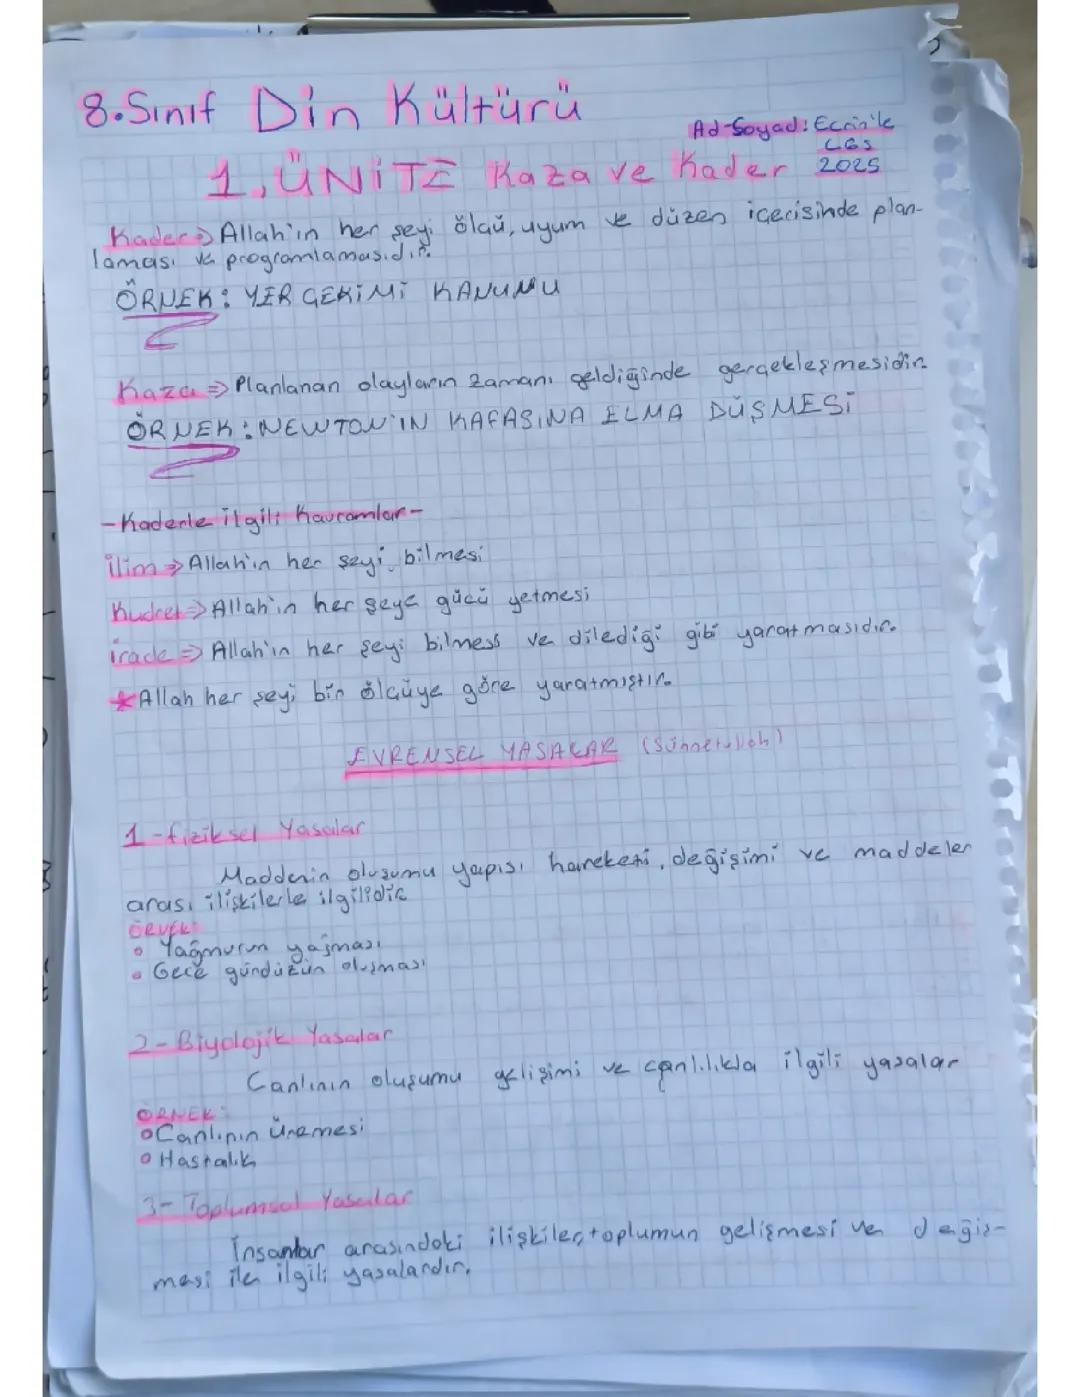 8.Sınıf Din Kültürü
Ad-Soyad: Ecrin'le
LGS
2025
1.ÜNİTE Kaza ve Kader
Kader⇒ Allah'ın her şeyi ölçü, uyum ve düzen içerisinde plan-
laması ve programlamasıdır.
ÖRNEK: YER ÇEKİMİ KANUNU
Kaza ⇒ Planlanan olayların zamanı geldiğinde gerçekleşmesidir.
ÖRNEK: NEWTON'IN KAFASINA ELMA DÜŞMESİ
-Kaderle ilgili Kavramlar-
İlim ⇒ Allah'ın her şeyi bilmesi
Kudret ⇒ Allah'ın her şeye gücü yetmesi
irade ⇒ Allah'ın her şeyi bilmesi ve dilediği gibi yaratmasıdır.
* Allah her şeyi bir ölçüye göre yaratmıştır.
EVRENSEL YASALAR (Sünnetullah)
1-fiziksel Yasalar
Maddenin oluşumu yapısı hareketi, değişimi ve maddeler
arası ilişkilerle ilgilidir
ÖRNEK:
• Yağmurun yağması
• Gece gündüzün oluşması
2- Biyolojik Yasalar
Canlının oluşumu gelişimi ve canlılıkla ilgili yasalar
ÖRNEK:
• Canlının üremesi
• Hastalık
3- Toplumsal Yasalar
İnsanlar arasındaki ilişkiler, toplumun gelişmesi ve değiş-
mesi ile ilgili yasalardır.